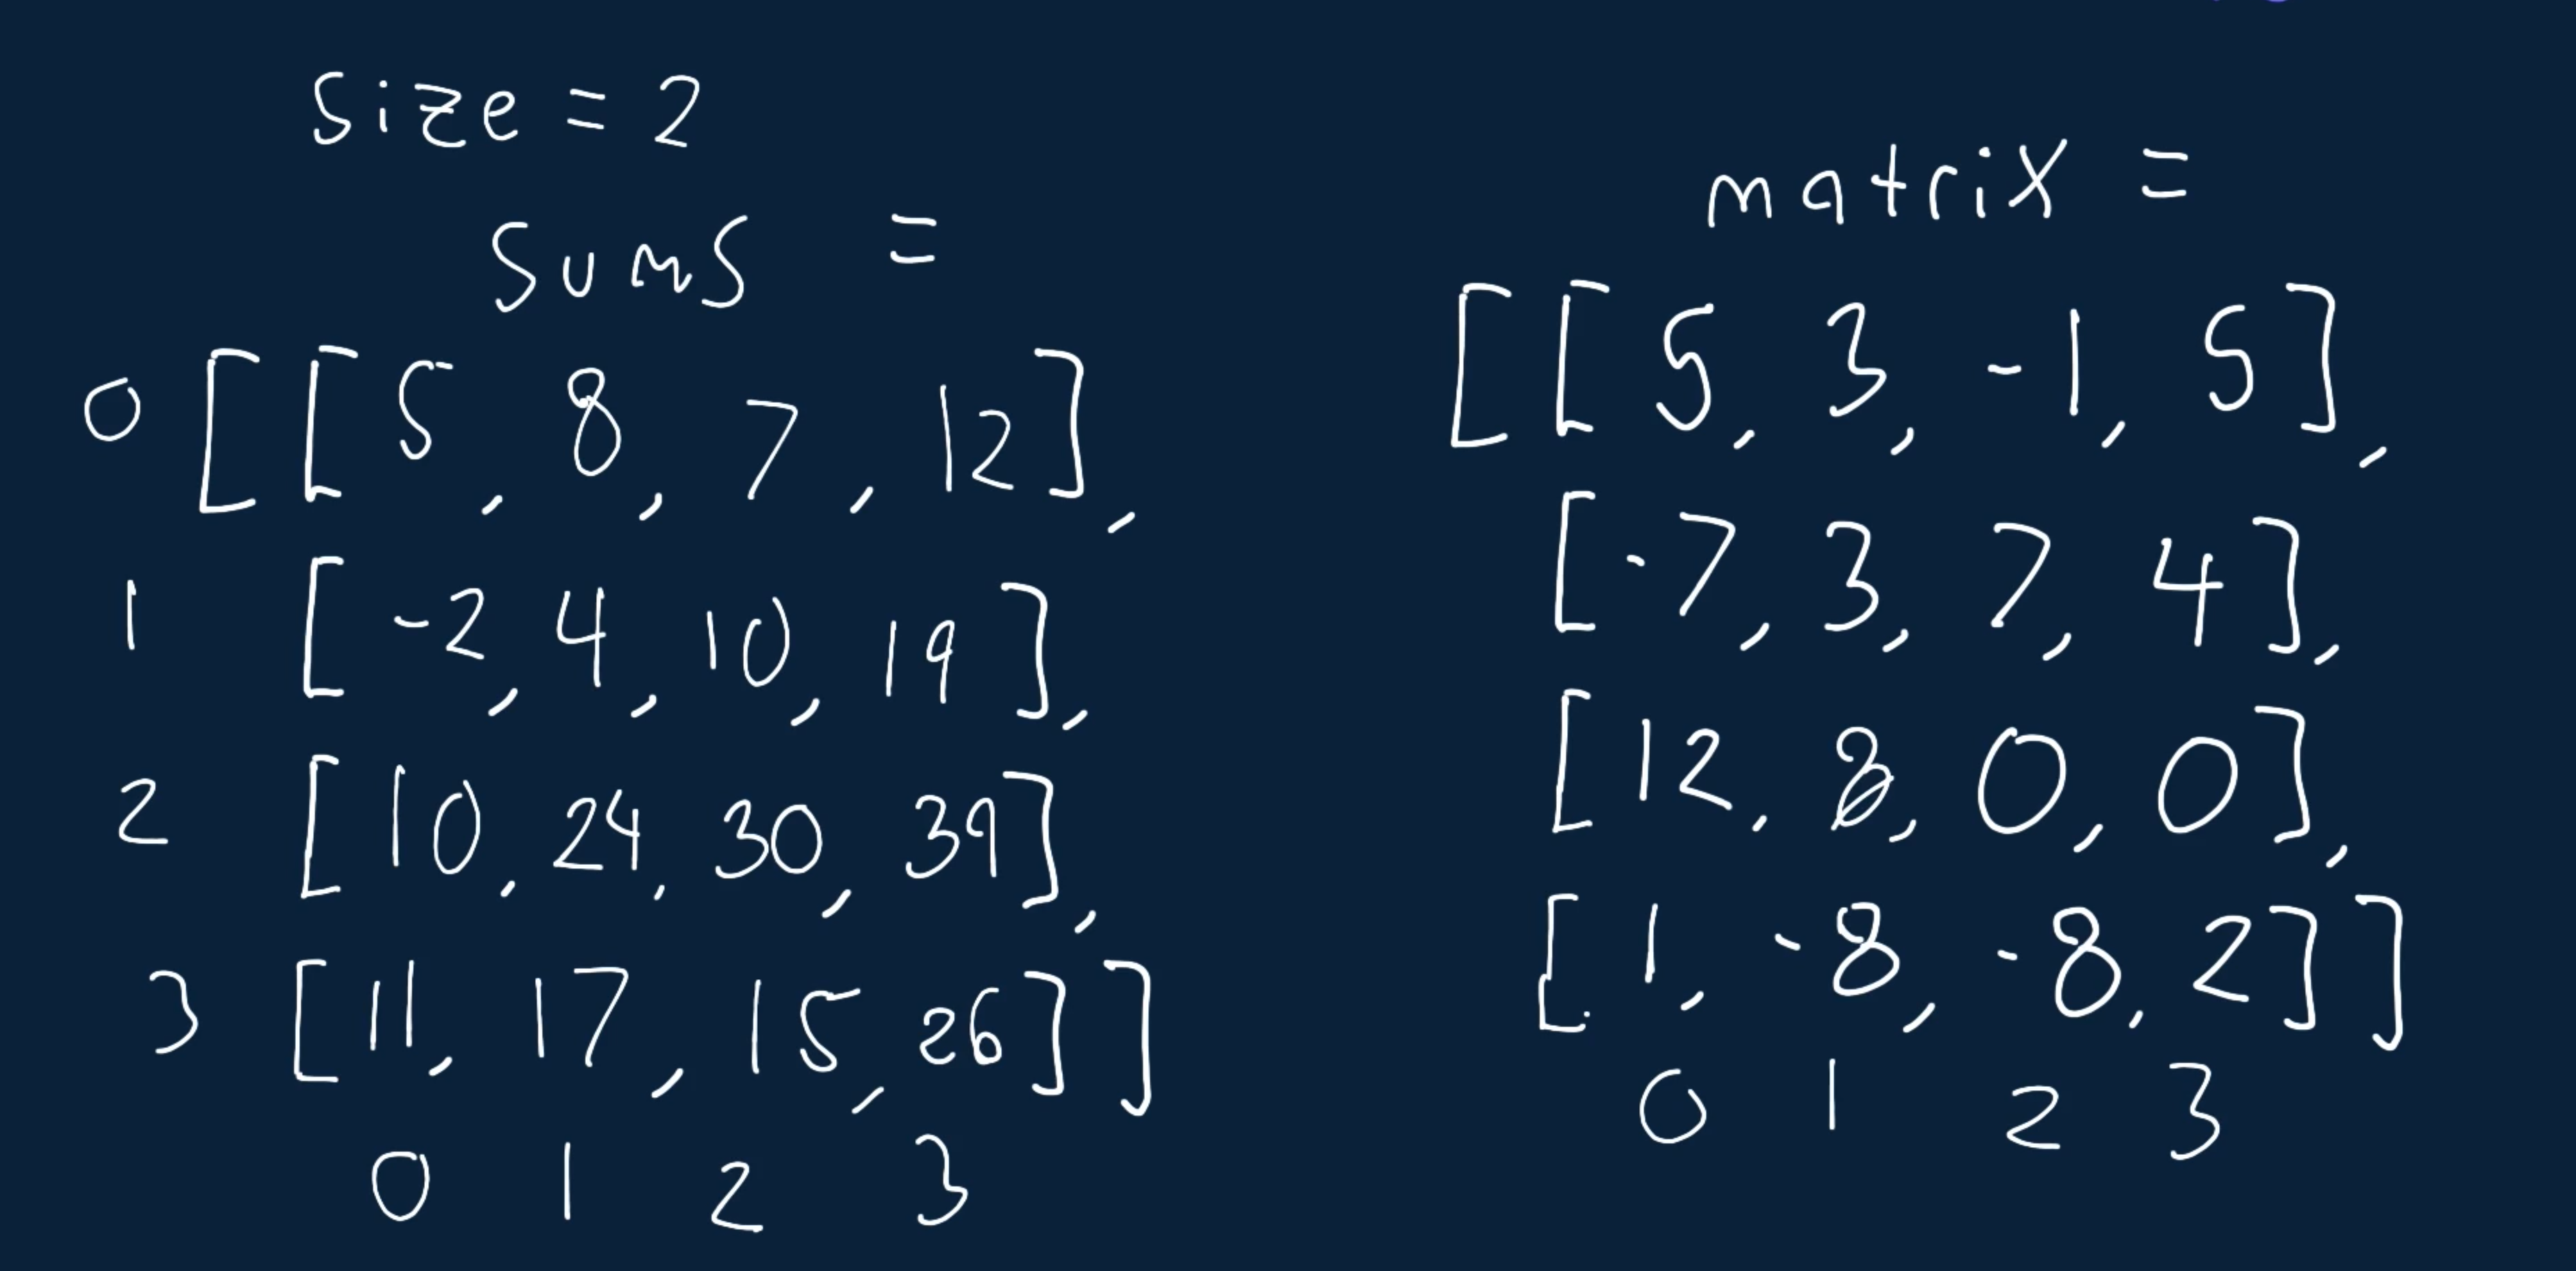 size = 2
sums =
0 [[5, 8, 7, 12],
1 [-2, 4, 10, 19],
2 [10, 24, 30, 39],
3 [11, 17, 15, 26]]
0 1 2 3
matrix =
[[5, 3, -1, 5],
[-7, 3, 7, 4],
[12, 8, 0, 0],
[1, -8, -8, 2]]
0 1 2 3